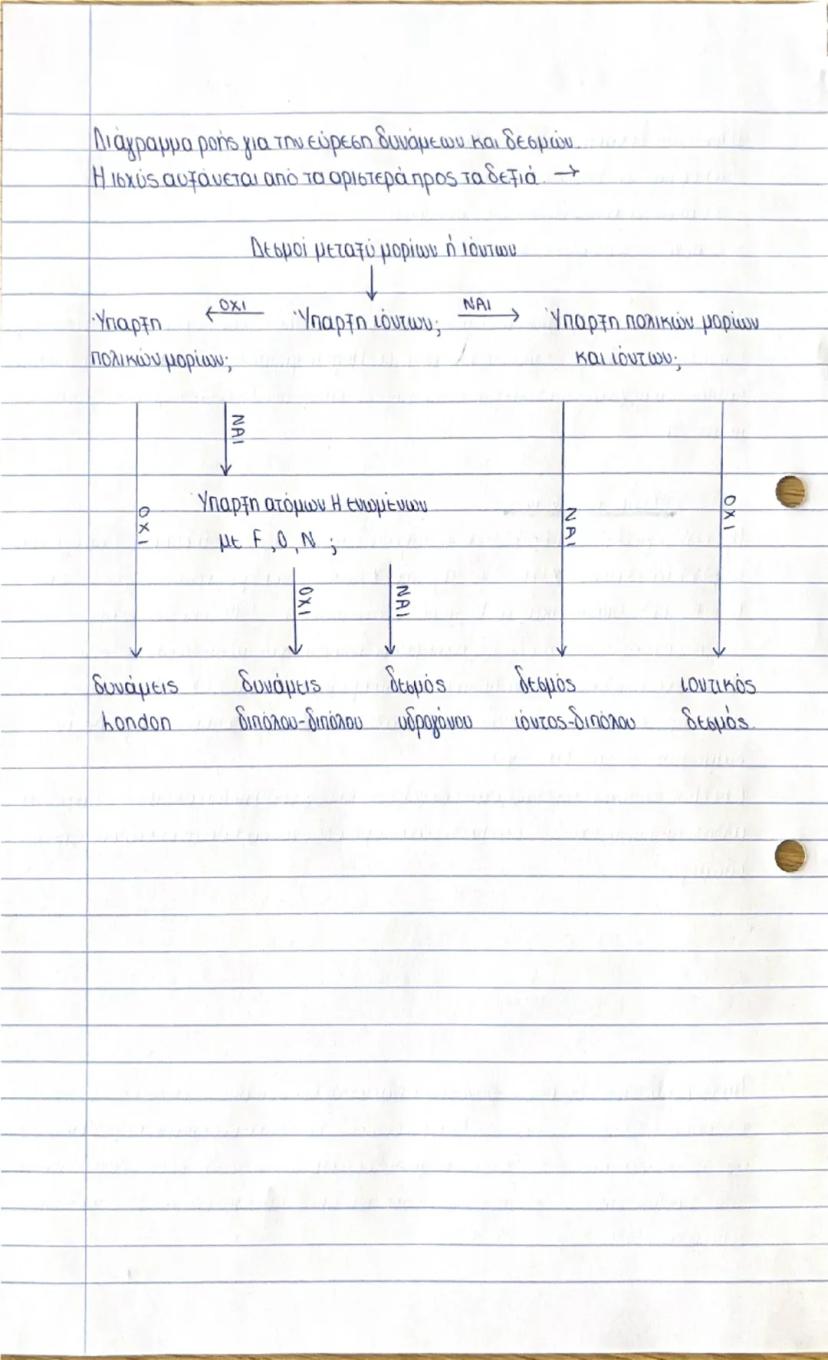 Διάγραμμα ροής για την εύρεση δυνάμεων και δεσμών.
Η ισχύς αυξάνεται από τα αριστερά προς τα δεξιά →
Δεσμοί μεταξύ μορίων ή ιόντων
Ύπαρξη πολικών μορίων;
ΟΧΙ
Ύπαρξη ιόντων;
ΝΑΙ
Ύπαρξη πολικών μορίων
και ιόντων;
ΝΑΙ
ΟΧΙ
Ύπαρξη ατόμων Η ενωμένων
με F, O, N ;
ΝΑΙ
ΟΧΙ
ΟΧΙ
ΝΑΙ
δυνάμεις
London
δυνάμεις
διπόλου-διπόλου
δεσμός
υδρογόνου
δεσμός
ιόντος-διπόλου
ιοντικός
δεσμός